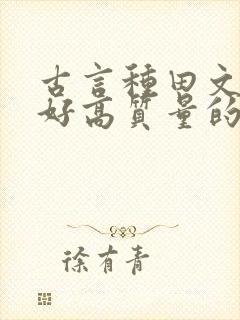 古言種田文
好高質量的
徐有青